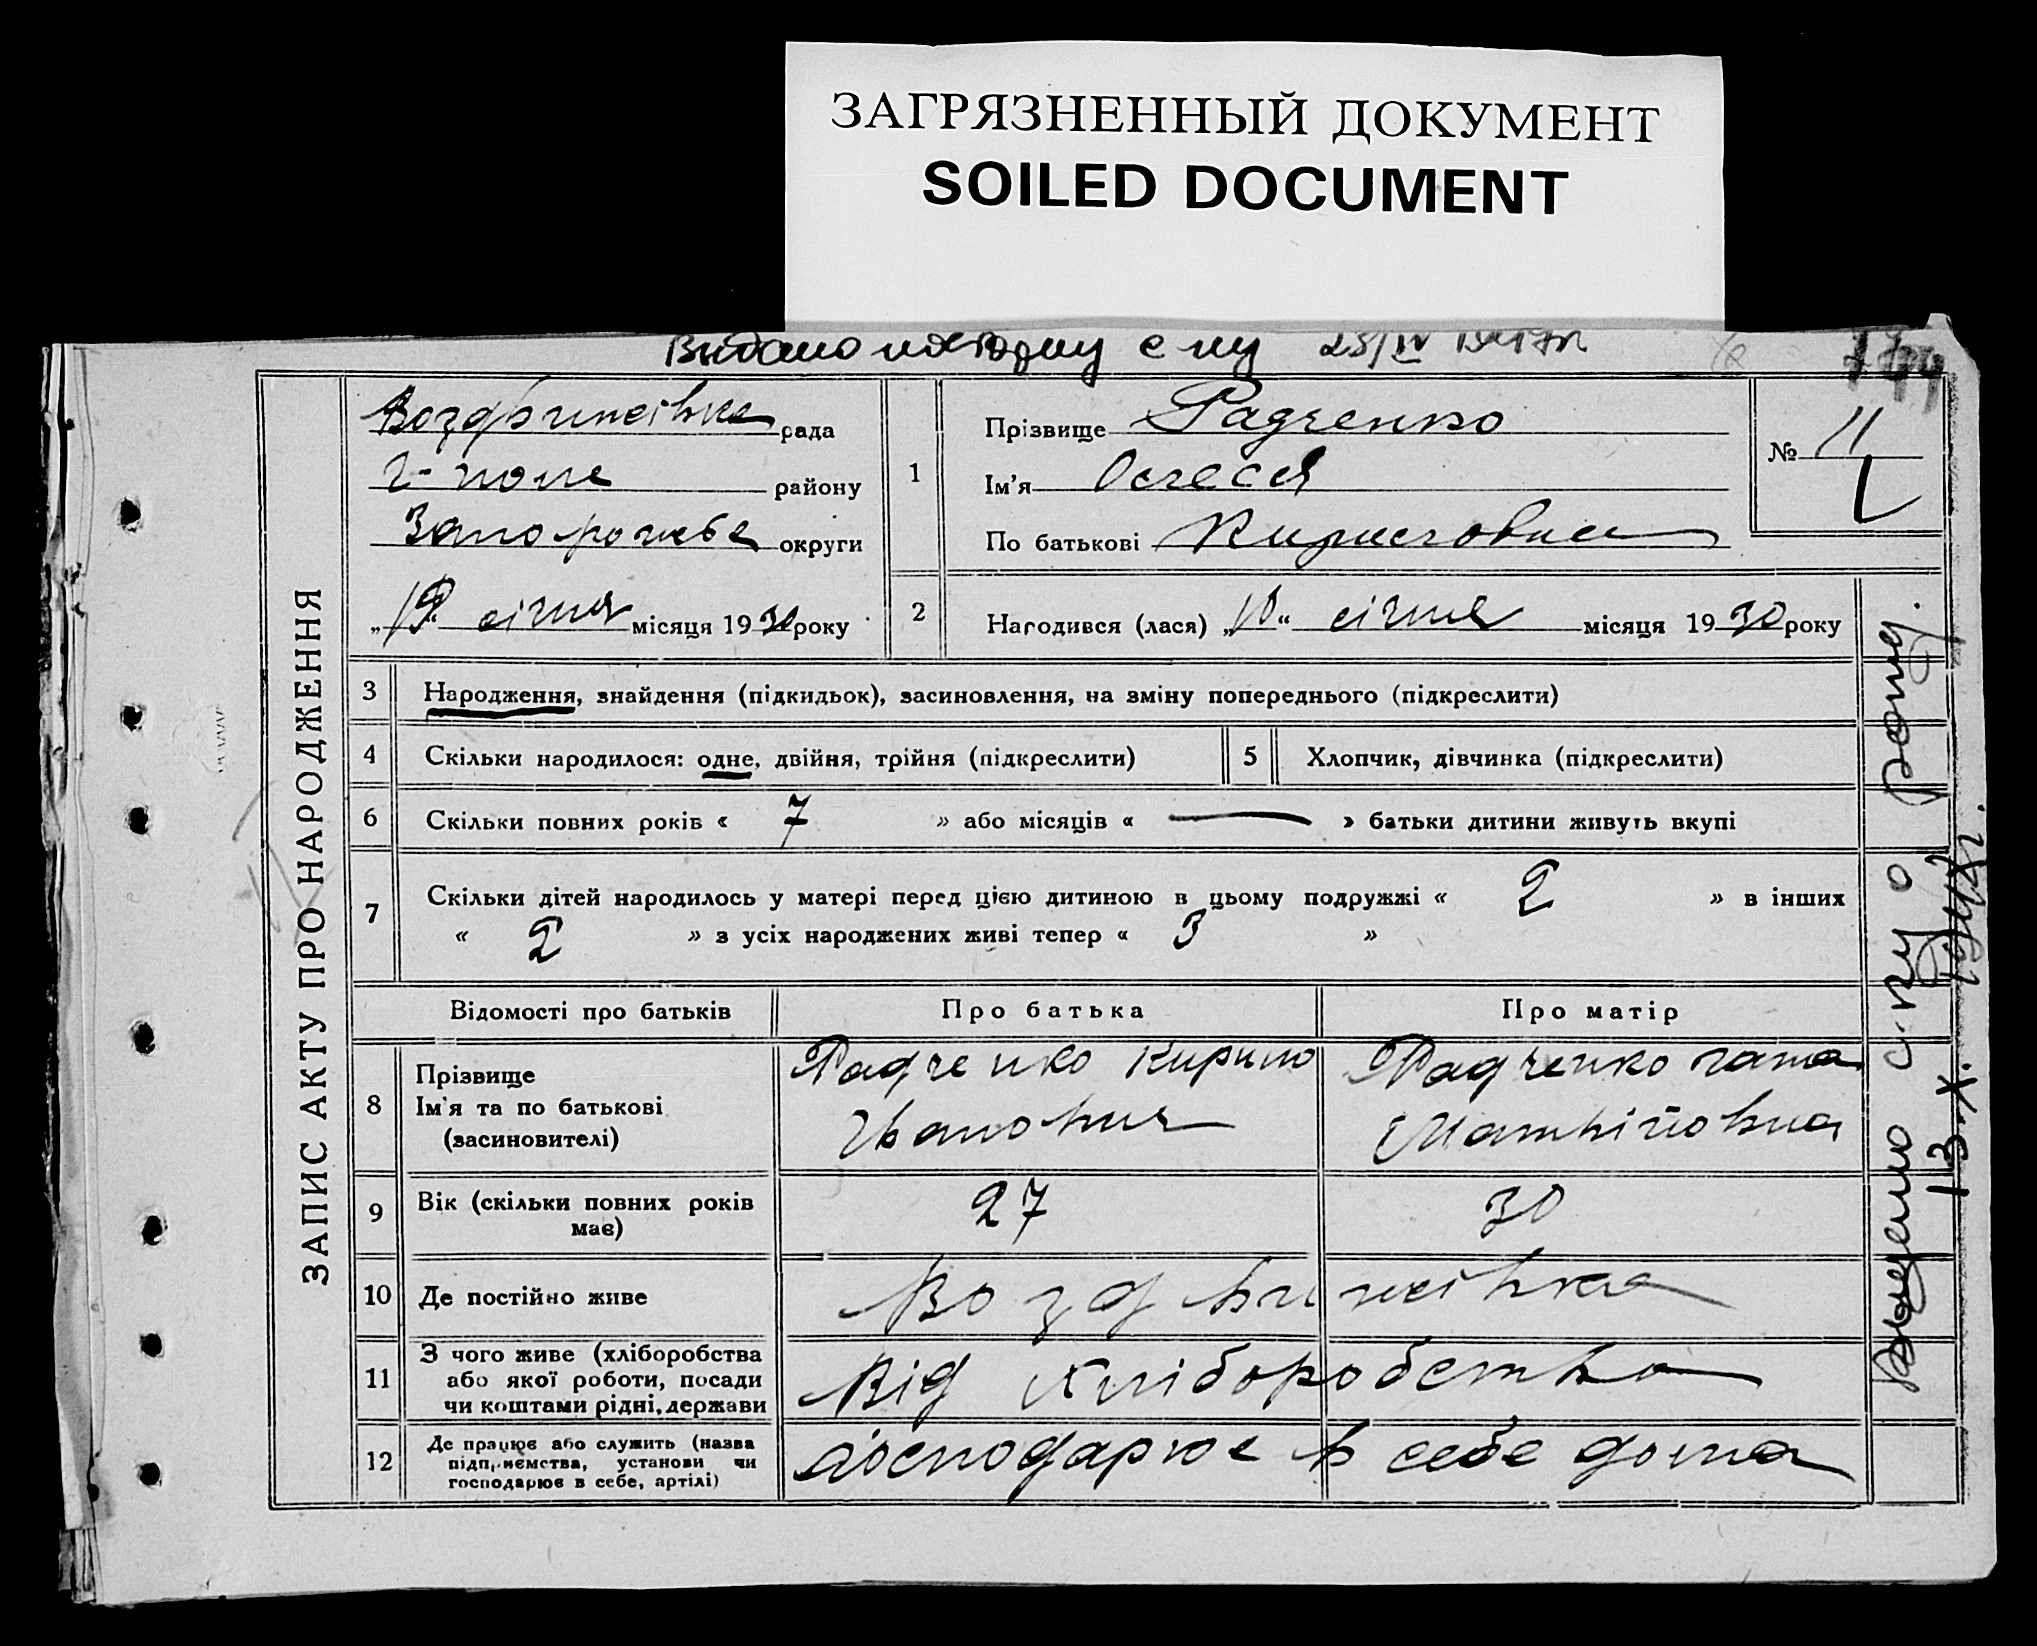 ЗАГРЯЗНЕННЫЙ ДОКУМЕНТ
SOILED DOCUMENT
Видано повторну с-ву 28/IV
ЗАПИС АКТУ ПРО НАРОДЖЕННЯ
Воздвижівка рада
Г-поле району
Запорожье округи
„19“ січня місяця 1930 року
1
Прізвище Радченко
Ім'я Олеся
По батькові Кириловна
№ 11
2
Народився (лася) „10“ січня місяця 1930 року
3 Народження, знайдення (підкидьок), засиновлення, на зміну попереднього (підкреслити)
4 Скільки народилося: одне, двійня, трійня (підкреслити)
5 Хлопчик, дівчинка (підкреслити)
6 Скільки повних років « 7 » або місяців « — » батьки дитини живуть вкупі
7 Скільки дітей народилось у матері перед цією дитиною в цьому подружжі « 2 » в інших
« 2 » з усіх народжених живі тепер « 3 »
Відомості про батьків Про батька Про матір
8 Прізвище
Ім'я та по батькові
(засиновителі)
Радченко Кирило
Іванович
Радченко
Матвійовна
9 Вік (скільки повних років
має)
27
30
10 Де постійно живе
Воздвижівка
11 З чого живе (хліборобства
або якої роботи, посади
чи коштами рідні, держави
Від хліборобства
12 Де працює або служить (назва
підприємства, установи чи
господарює в себе, артілі)
господарює в себе дома
Видано с-ву о рожд.
13-X. 1948г.